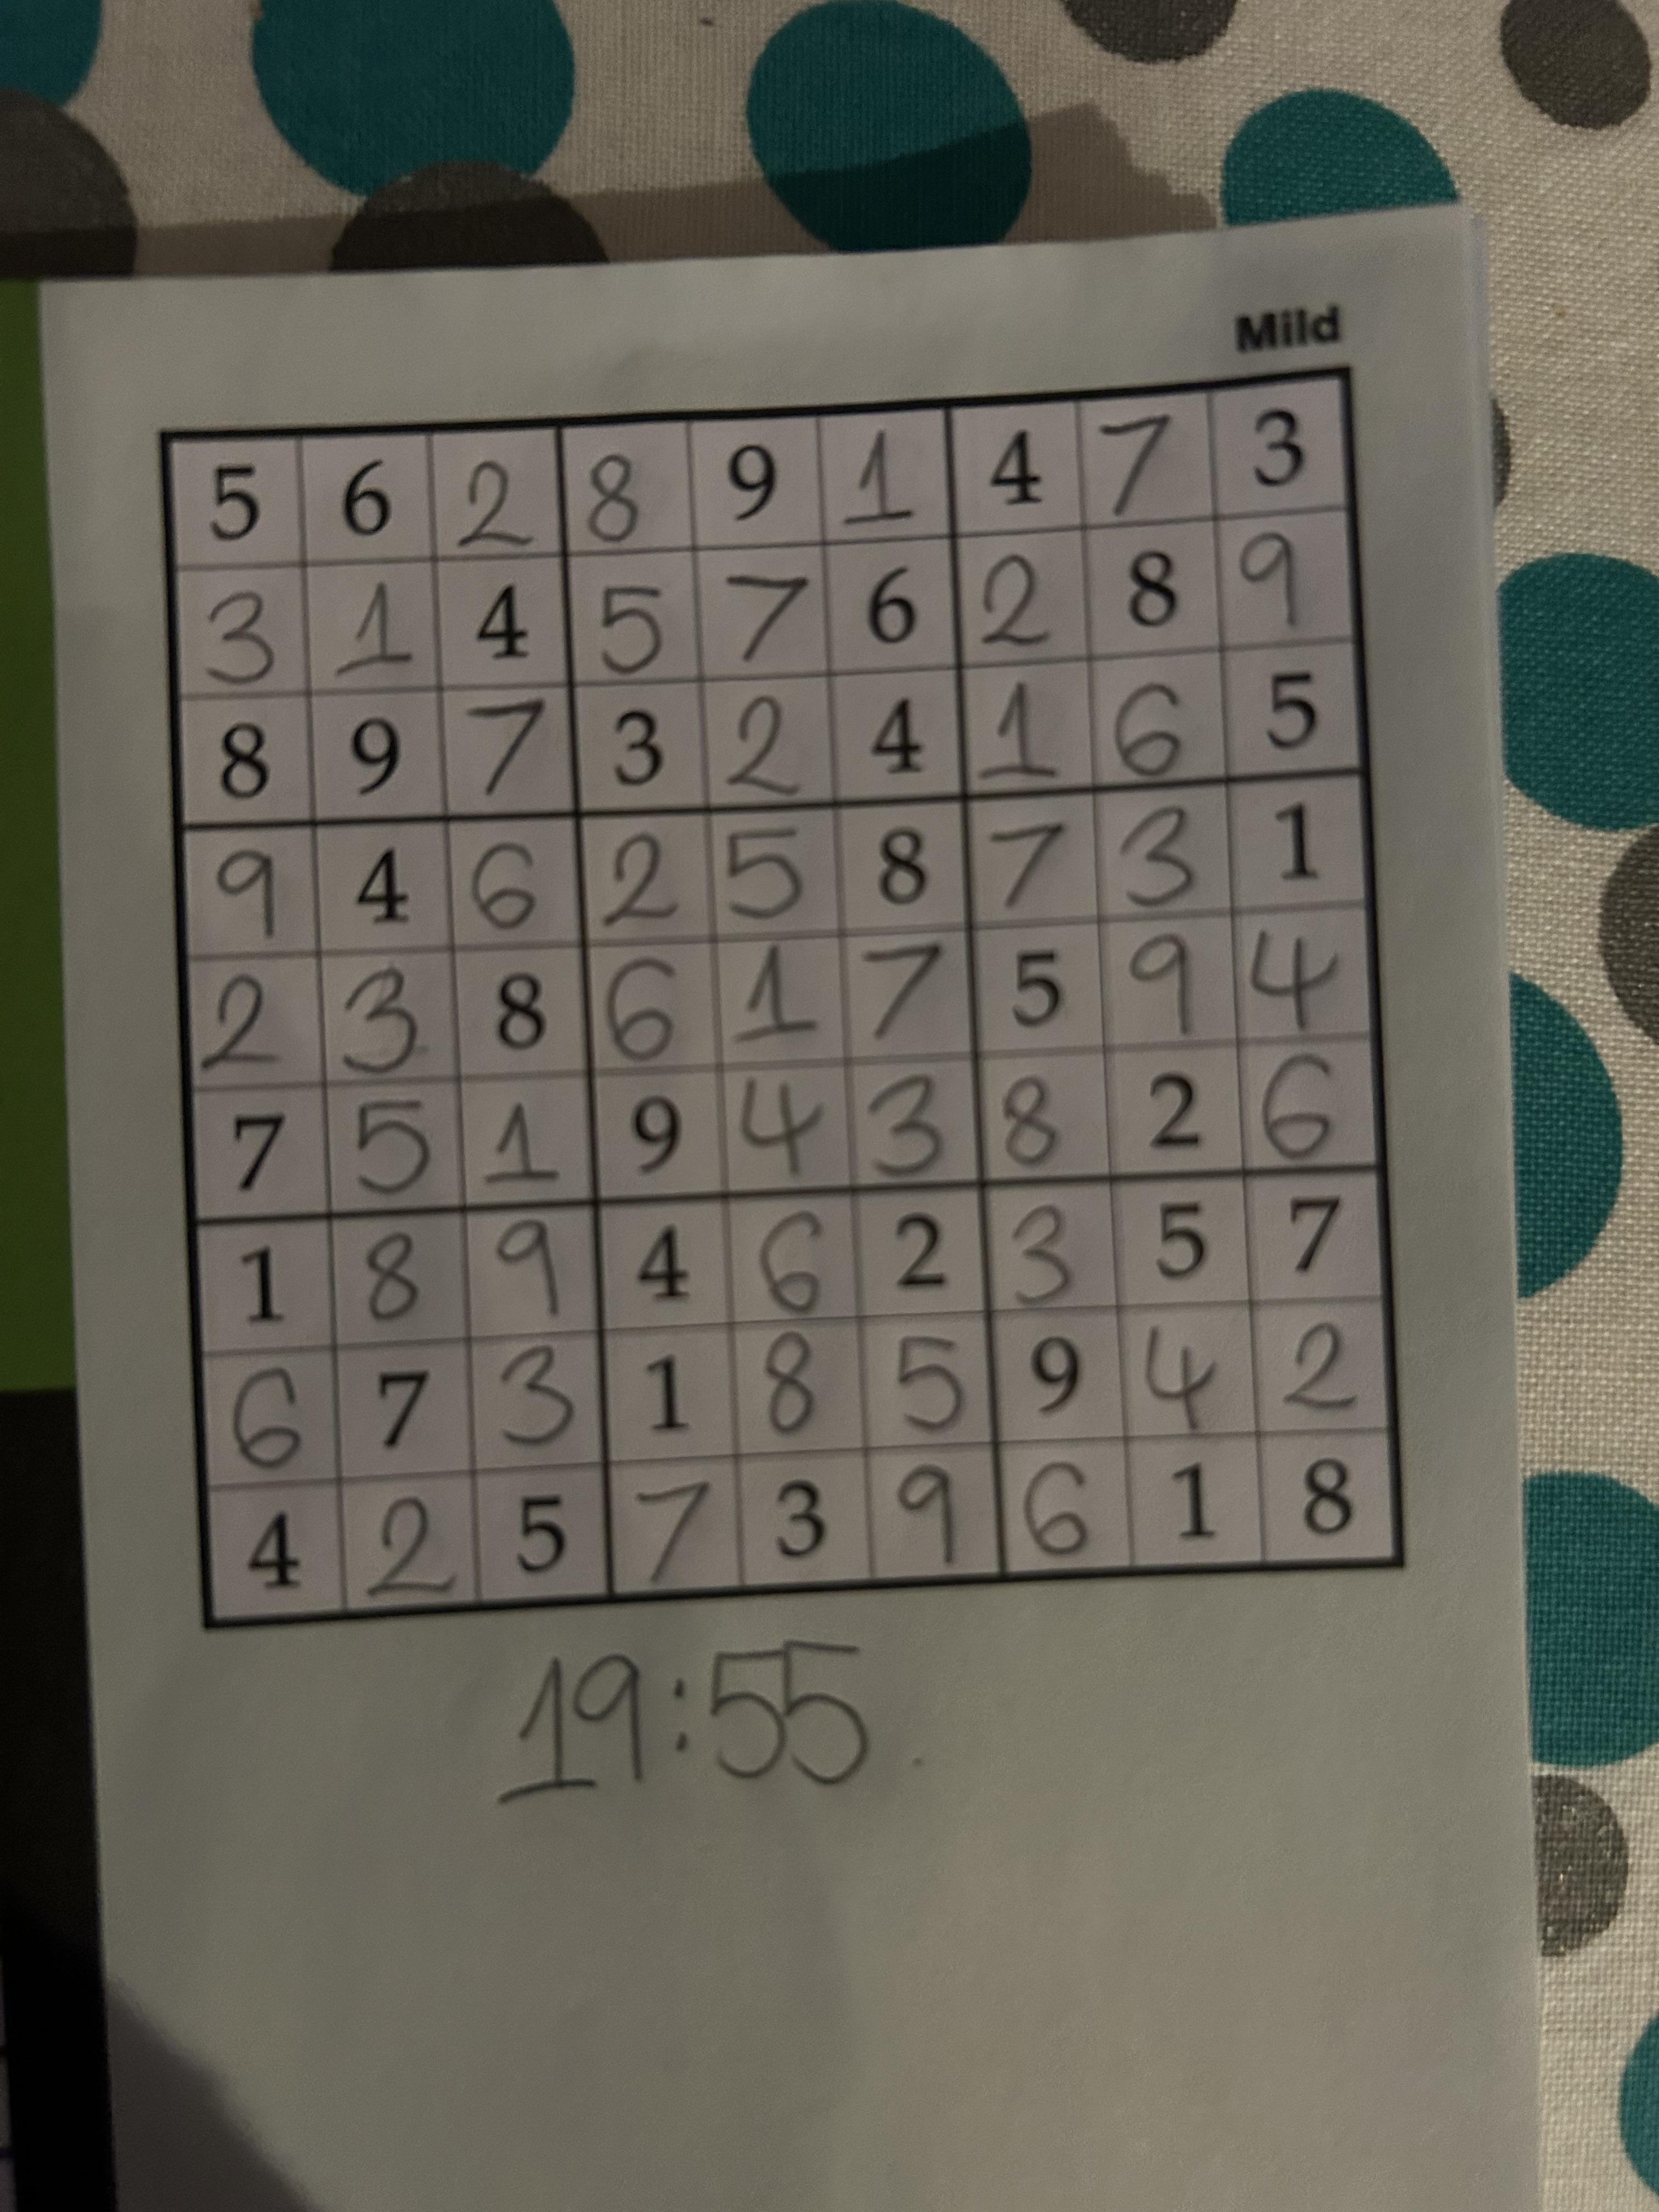 Mild
5 6 2 8 9 1 4 7 3
3 1 4 5 7 6 2 8 9
8 9 7 3 2 4 1 6 5
9 4 6 2 5 8 7 3 1
2 3 8 6 1 7 5 9 4
7 5 1 9 4 3 8 2 6
1 8 9 4 6 2 3 5 7
6 7 3 1 8 5 9 4 2
4 2 5 7 3 9 6 1 8
19:55.